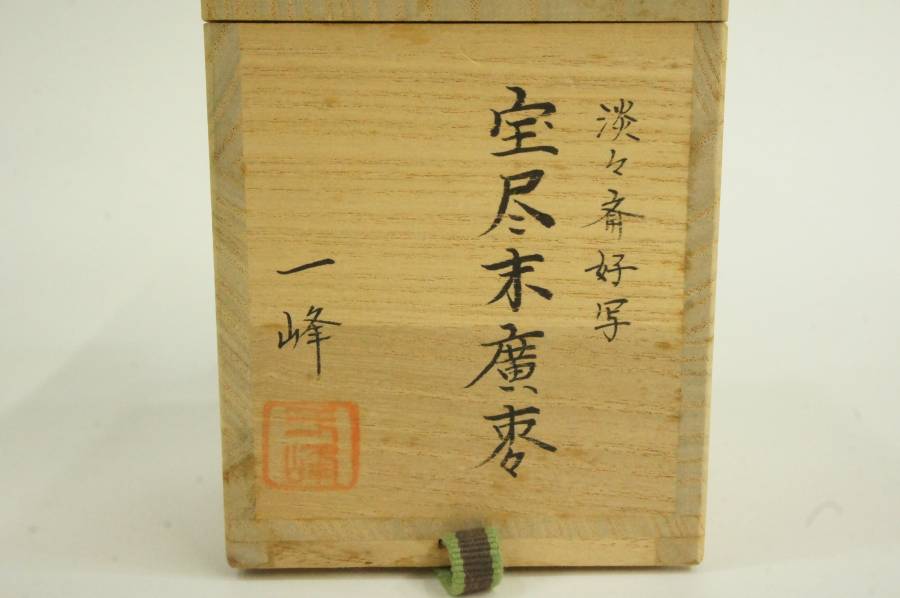 淡々斎好写
宝尽末廣棗
一峰